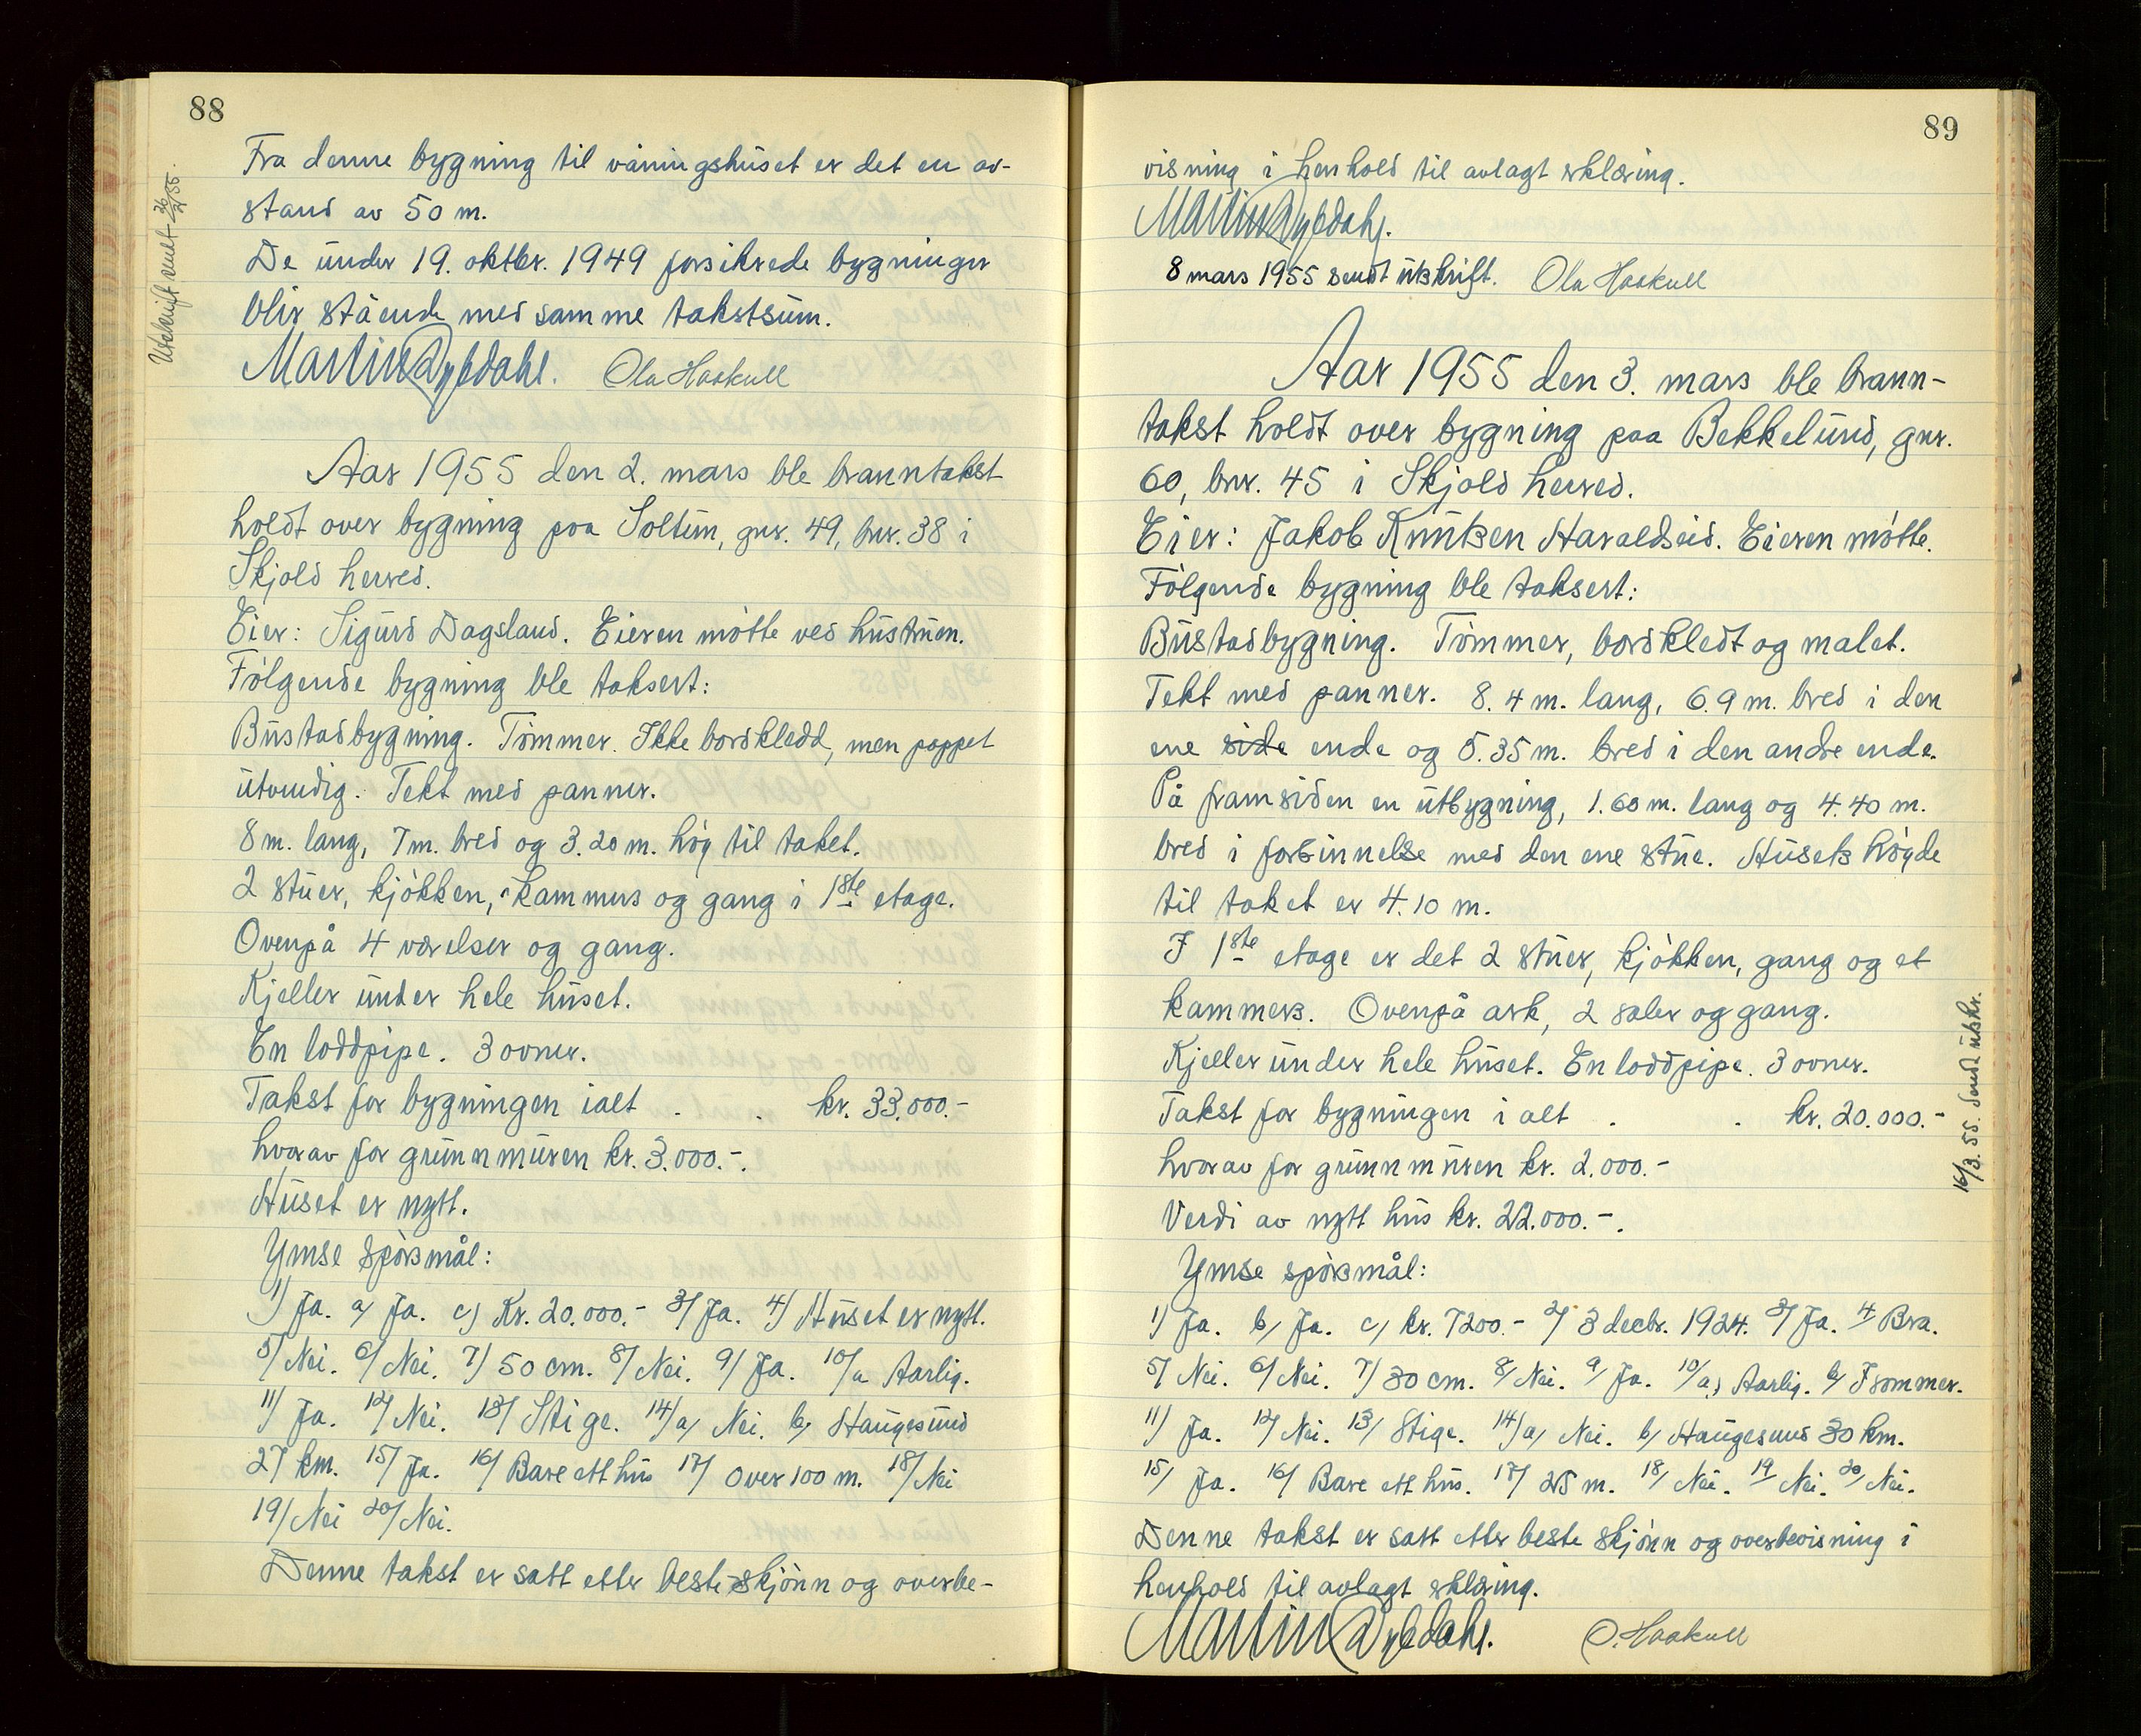 88
Utskrift sendt 26/2 55.
Fra denne bygning til våningshuset er det en av-
stand av 50 m.
De under 19. oktbr. 1949 forsikrede bygninger
blir stående med samme takstsum.
Martin Dybdahl. Ola Haskull
Aar 1955 den 2. mars ble branntakst
holdt over bygning paa Soltun, gnr. 49, bnr. 38 i
Skjold herred.
Eier: Sigurd Dagsland. Eieren møtte ved hustruen.
Følgende bygning ble taksert:
Bustadbygning. Tømmer. Ikke bordkledd, men pappet
utvendig. Tekt med panner.
8 m. lang, 7 m. bred og 3.20 m. høg til taket.
2 stuer, kjøkken, kammers og gang i 1ste etage.
Ovenpå 4 værelser og gang.
Kjeller under hele huset.
En loddpipe. 3 ovner.
Takst for bygningen ialt . . kr. 33.000.-
hvorav for grunnmuren kr. 3.000.-.
Huset er nytt.
Ymse spørsmål:
1/ Ja. a/ Ja. c/ Kr. 20.000.- 3/ Ja. 4/ Huset er nytt.
5/ Nei. 6/ Nei. 7/ 50 cm. 8/ Nei. 9/ Ja. 10/a Aarlig.
11/ Ja. 12/ Nei. 13/ Stige. 14/a/ Nei. b/ Haugesund
27 km. 15/ Ja. 16/ Bare ett hus 17/ Over 100 m. 18/ Nei
19/ Nei 20/ Nei.
Denne takst er satt etter beste skjønn og overbe-
89
visning i henhold til avlagt erklæring.
Martin Dybdahl.
8 mars 1955 sendt utskrift. Ola Haskull
Aar 1955 den 3. mars ble brann-
takst holdt over bygning paa Bekkelund, gnr.
60, bnr. 45 i Skjold herred.
Eier: Jakob Knutsen Haraldseid. Eieren møtte.
Følgende bygning ble taksert:
Bustadbygning. Tømmer, bordkledt og malet.
Tekt med panner. 8.4 m. lang, 6.9 m. bred i den
ene side ende og 5.35 m. bred i den andre ende.
På framsiden en utbygning, 1.60 m. lang og 4.40 m.
bred i forbinnelse med den ene stue. Husets høyde
til taket er 4.10 m.
I 1ste etage er det 2 stuer, kjøkken, gang og et
kammers. Ovenpå ark, 2 saler og gang.
Kjeller under hele huset. En loddpipe. 3 ovner.
Takst for bygningen i alt . . kr. 20.000.-
hvorav for grunnmuren kr. 2.000.-
Verdi av nytt hus kr. 22.000.-.
Ymse spørsmål:
1/ Ja. b/ Ja. c/ kr. 7200.- 2/ 3 decbr. 1924. 3/ Ja. 4 Bra.
5/ Nei. 6/ Nei. 7/ 30 cm. 8/ Nei. 9/ Ja. 10/a/ Aarlig. b/ I sommer.
11/ Ja. 12/ Nei. 13/ Stige. 14/a/ Nei. b/ Haugesund 30 km.
15/ Ja. 16/ Bare ett hus. 17/ 25 m. 18/ Nei. 19/ Nei. 20/ Nei.
Denne takst er satt etter beste skjønn og overbevisning i
henhold til avlagt erklæring.
Martin Dybdahl. O. Haskull
16/3. 55. Sendt utskr.